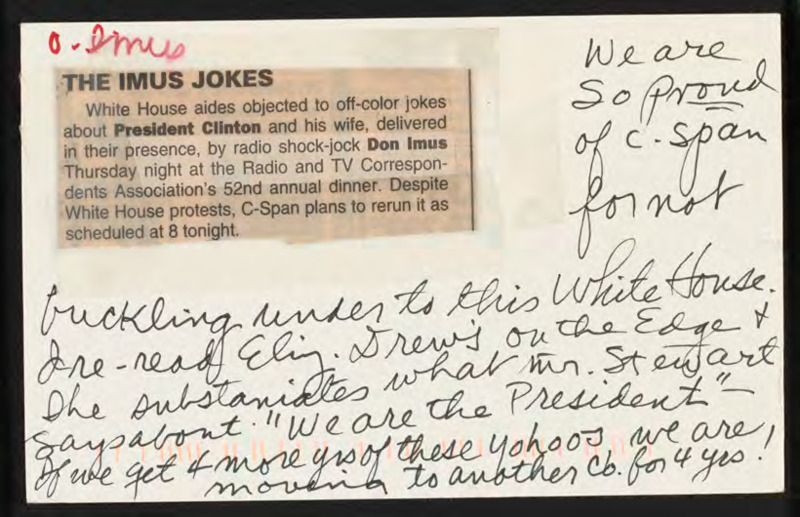 O. Imus
THE IMUS JOKES
White House aides objected to off-color jokes
about President Clinton and his wife, delivered
in their presence, by radio shock-jock Don Imus
Thursday night at the Radio and TV Correspon-
dents Association's 52nd annual dinner. Despite
White House protests, C-Span plans to rerun it as
scheduled at 8 tonight.
We are
So Proud
of C-Span
for not
buckling under to this White House.
I re-read Eliz. Drew's on the Edge &
She substaniates what Mr. Stewart
says about "We are the President"-
If we get 4 more yrs of these Yahoos, we are
moving to another Co. for 4 yrs!